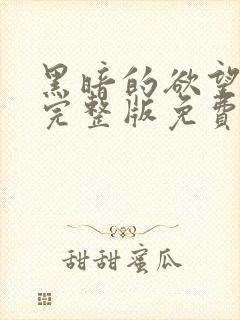 黑暗的欲望
完整版免費
甜甜蜜瓜